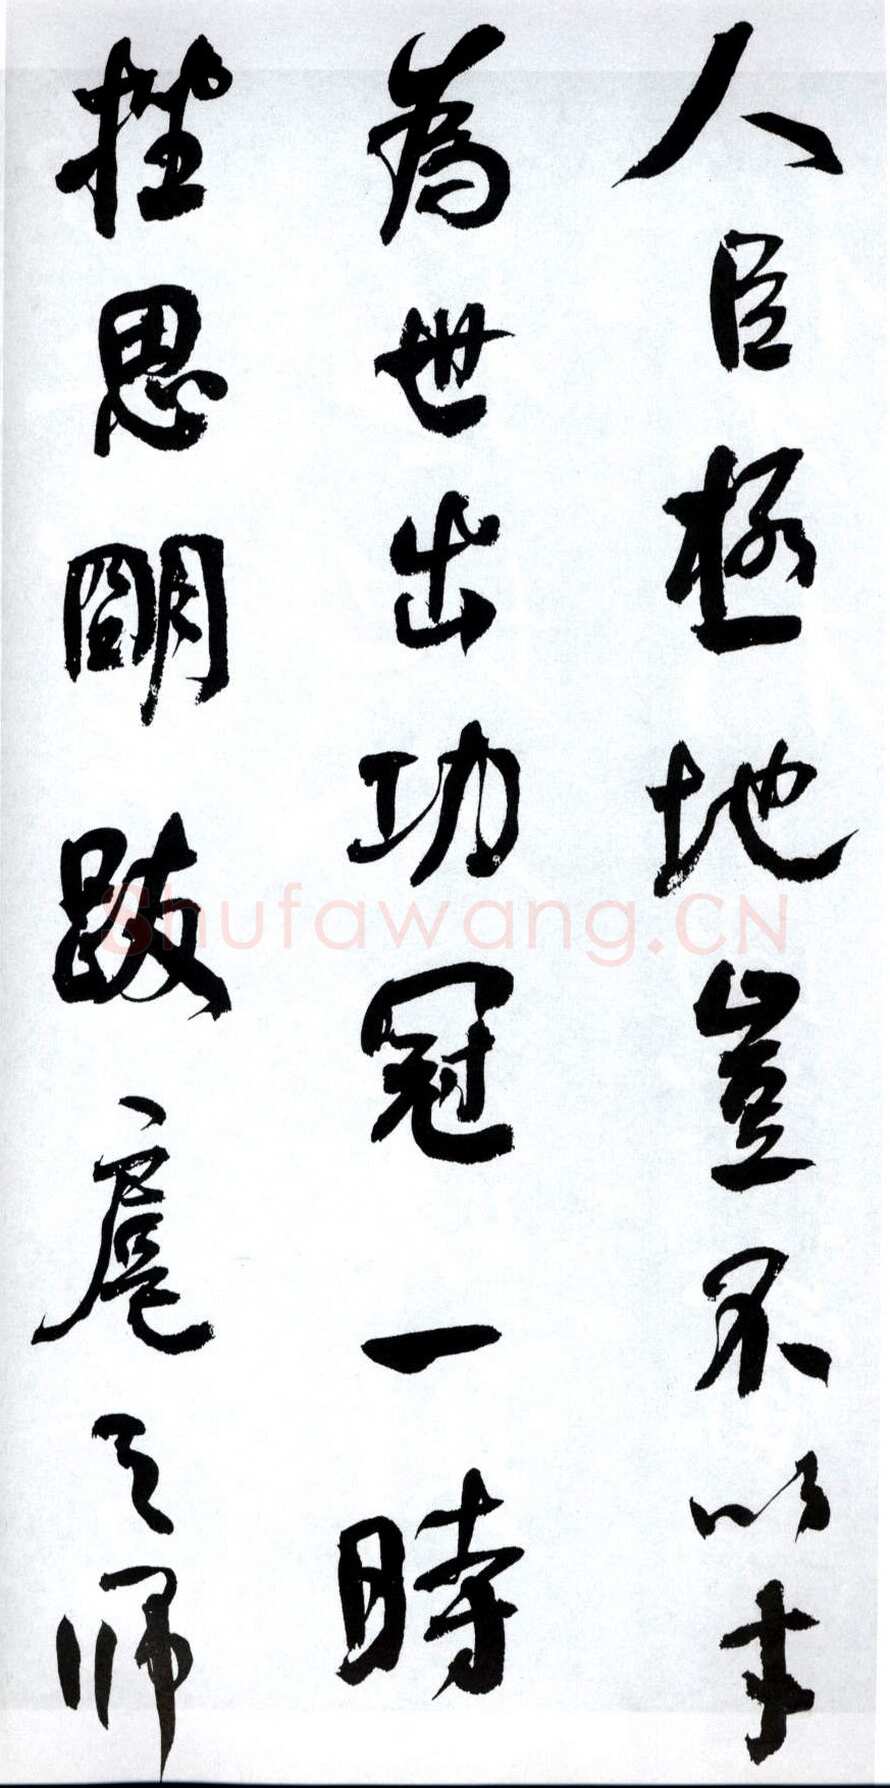 人臣極地豈不以才
為世出功冠一時
挫思明跋扈之師
Shufawang.CN